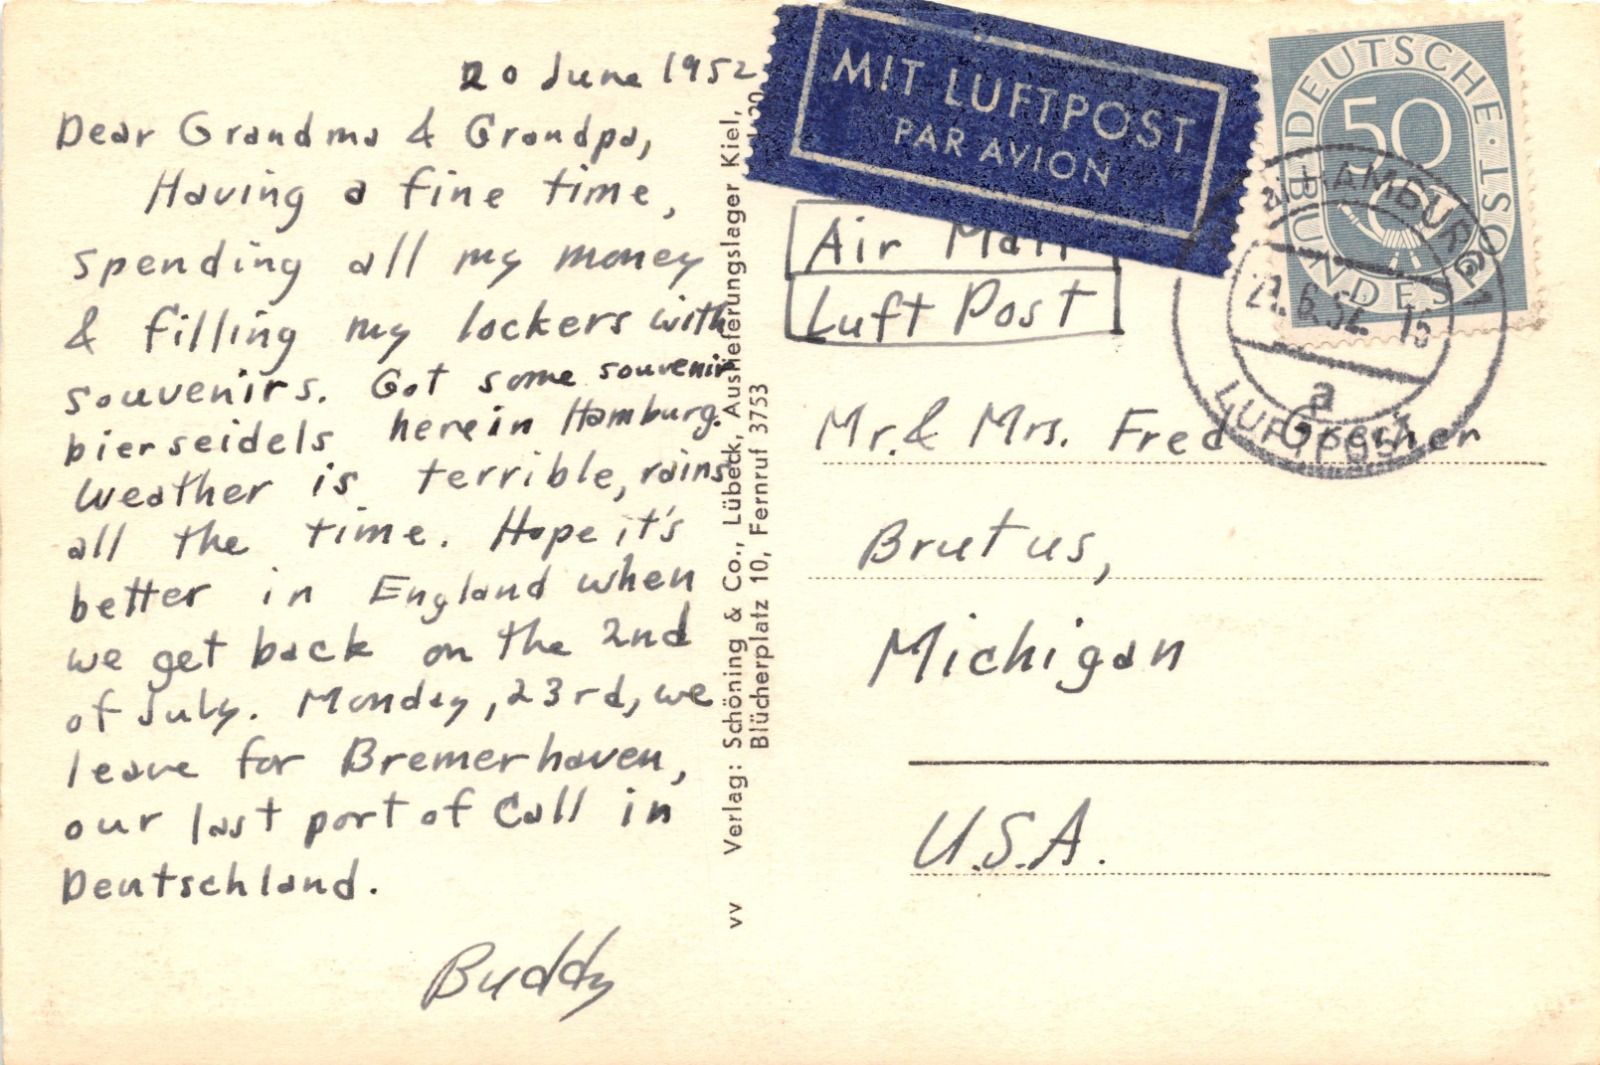 20 June 1952
Dear Grandma & Grandpa,
Having a fine time,
spending all my money
& filling my lockers with
souvenirs. Got some souvenir
bierseidels here in Hamburg.
Weather is terrible, rains
all the time. Hope it's
better in England when
we get back on the 2nd
of July. Monday, 23rd, we
leave for Bremerhaven,
our last port of call in
Deutschland.
Buddy
vv Verlag: Schöning & Co., Lübeck, Auslieferungslager Kiel,
Blücherplatz 10, Fernruf 3753
MIT LUFTPOST
PAR AVION
Air Mail
Luft Post
DEUTSCHE
BUNDESPOST
50
HAMBURG 1
21.6.52. 15
a
LUFTPOST
Mr. & Mrs. Fred
Brutus,
Michigan
U.S.A.